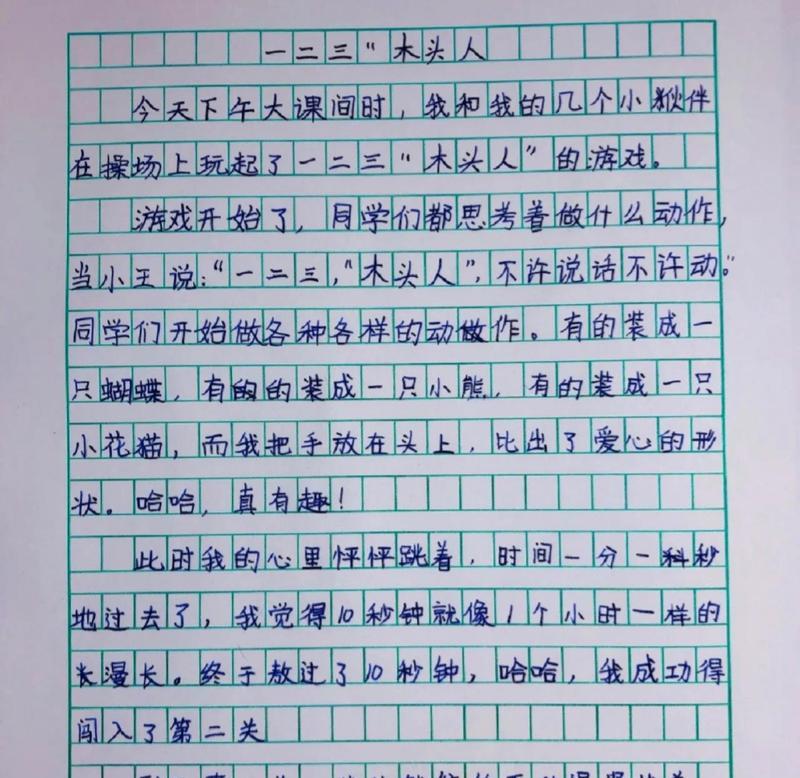 一二三“木头人
今天下午大课间时，我和我的几个小伙伴
在操场上玩起了一二三“木头人”的游戏。
游戏开始了，同学们都思考着做什么动作，
当小王说：“一二三，“木头人”，不许说话不许动。”
同学们开始做各种各样的动作。有的装成一
只蝴蝶，有的的装成一只小熊，有的装成一只
小花猫，而我把手放在头上，比出了爱心的形
状。哈哈，真有趣！
此时我的心里怦怦跳着，时间一分一秒
地过去了，我觉得10秒钟就像1个小时一样的
长漫长。终于熬过了10秒钟，哈哈，我成功得
闯入了第二关